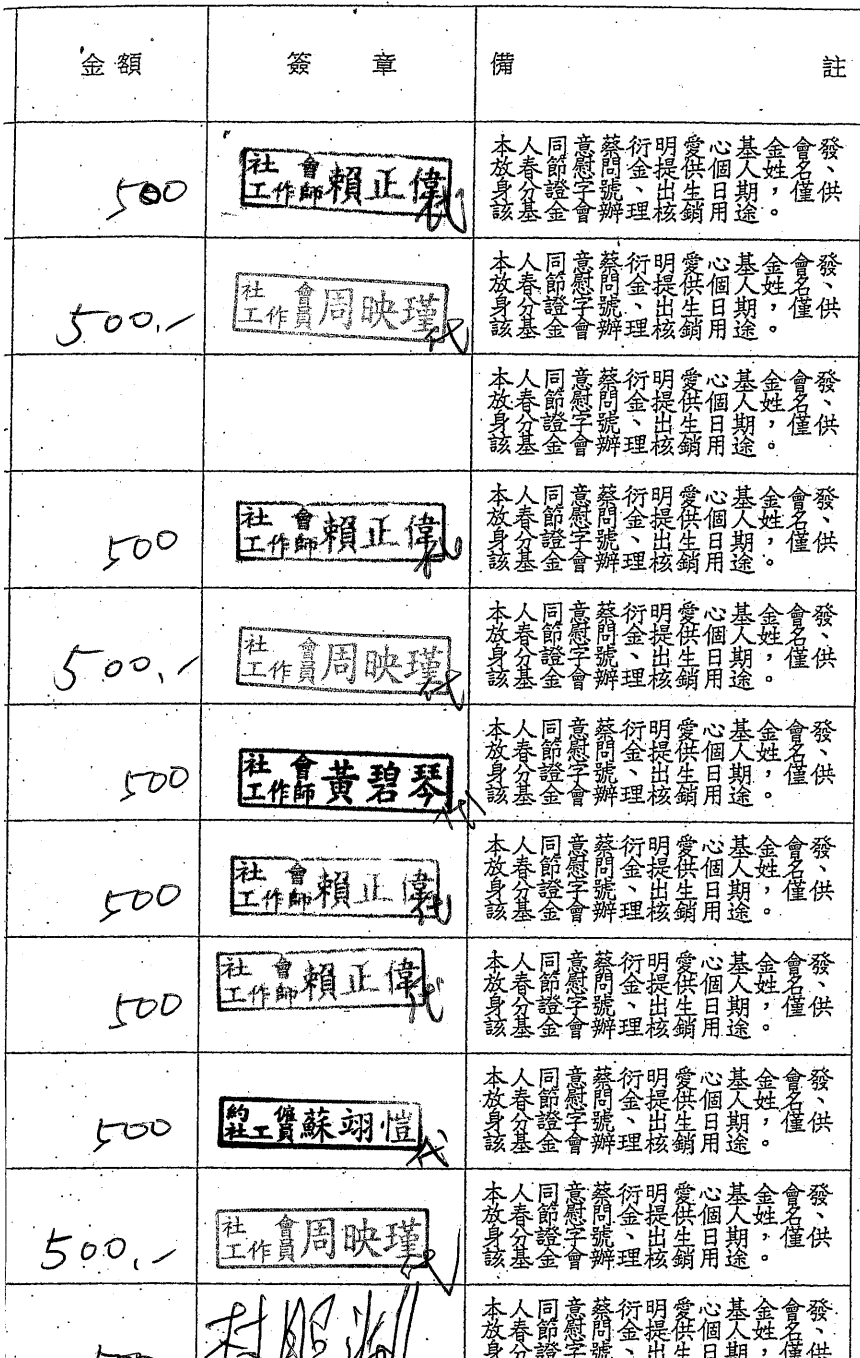 金額 簽章 備註
500
社會
工作師 賴正偉 代
本人同意蔡衍明愛心基金會發
放春節慰問金提供個人姓名、
身分證字號、出生日期，僅供
該基金會辦理核銷用途。
500.-
社會
工作員 周映瑾 代
本人同意蔡衍明愛心基金會發
放春節慰問金提供個人姓名、
身分證字號、出生日期，僅供
該基金會辦理核銷用途。
本人同意蔡衍明愛心基金會發
放春節慰問金提供個人姓名、
身分證字號、出生日期，僅供
該基金會辦理核銷用途。
500
社會
工作師 賴正偉 代
本人同意蔡衍明愛心基金會發
放春節慰問金提供個人姓名、
身分證字號、出生日期，僅供
該基金會辦理核銷用途。
500.-
社會
工作員 周映瑾 代
本人同意蔡衍明愛心基金會發
放春節慰問金提供個人姓名、
身分證字號、出生日期，僅供
該基金會辦理核銷用途。
500
社會
工作師 黃碧琴 代
本人同意蔡衍明愛心基金會發
放春節慰問金提供個人姓名、
身分證字號、出生日期，僅供
該基金會辦理核銷用途。
500
社會
工作師 賴正偉 代
本人同意蔡衍明愛心基金會發
放春節慰問金提供個人姓名、
身分證字號、出生日期，僅供
該基金會辦理核銷用途。
500
社會
工作師 賴正偉 代
本人同意蔡衍明愛心基金會發
放春節慰問金提供個人姓名、
身分證字號、出生日期，僅供
該基金會辦理核銷用途。
500
約僱
社工員 蘇翊愷 代
本人同意蔡衍明愛心基金會發
放春節慰問金提供個人姓名、
身分證字號、出生日期，僅供
該基金會辦理核銷用途。
500.-
社會
工作員 周映瑾 代
本人同意蔡衍明愛心基金會發
放春節慰問金提供個人姓名、
身分證字號、出生日期，僅供
該基金會辦理核銷用途。
本人同意蔡衍明愛心基金會發
放春節慰問金提供個人姓名、
身分證字號、出生日期，僅供